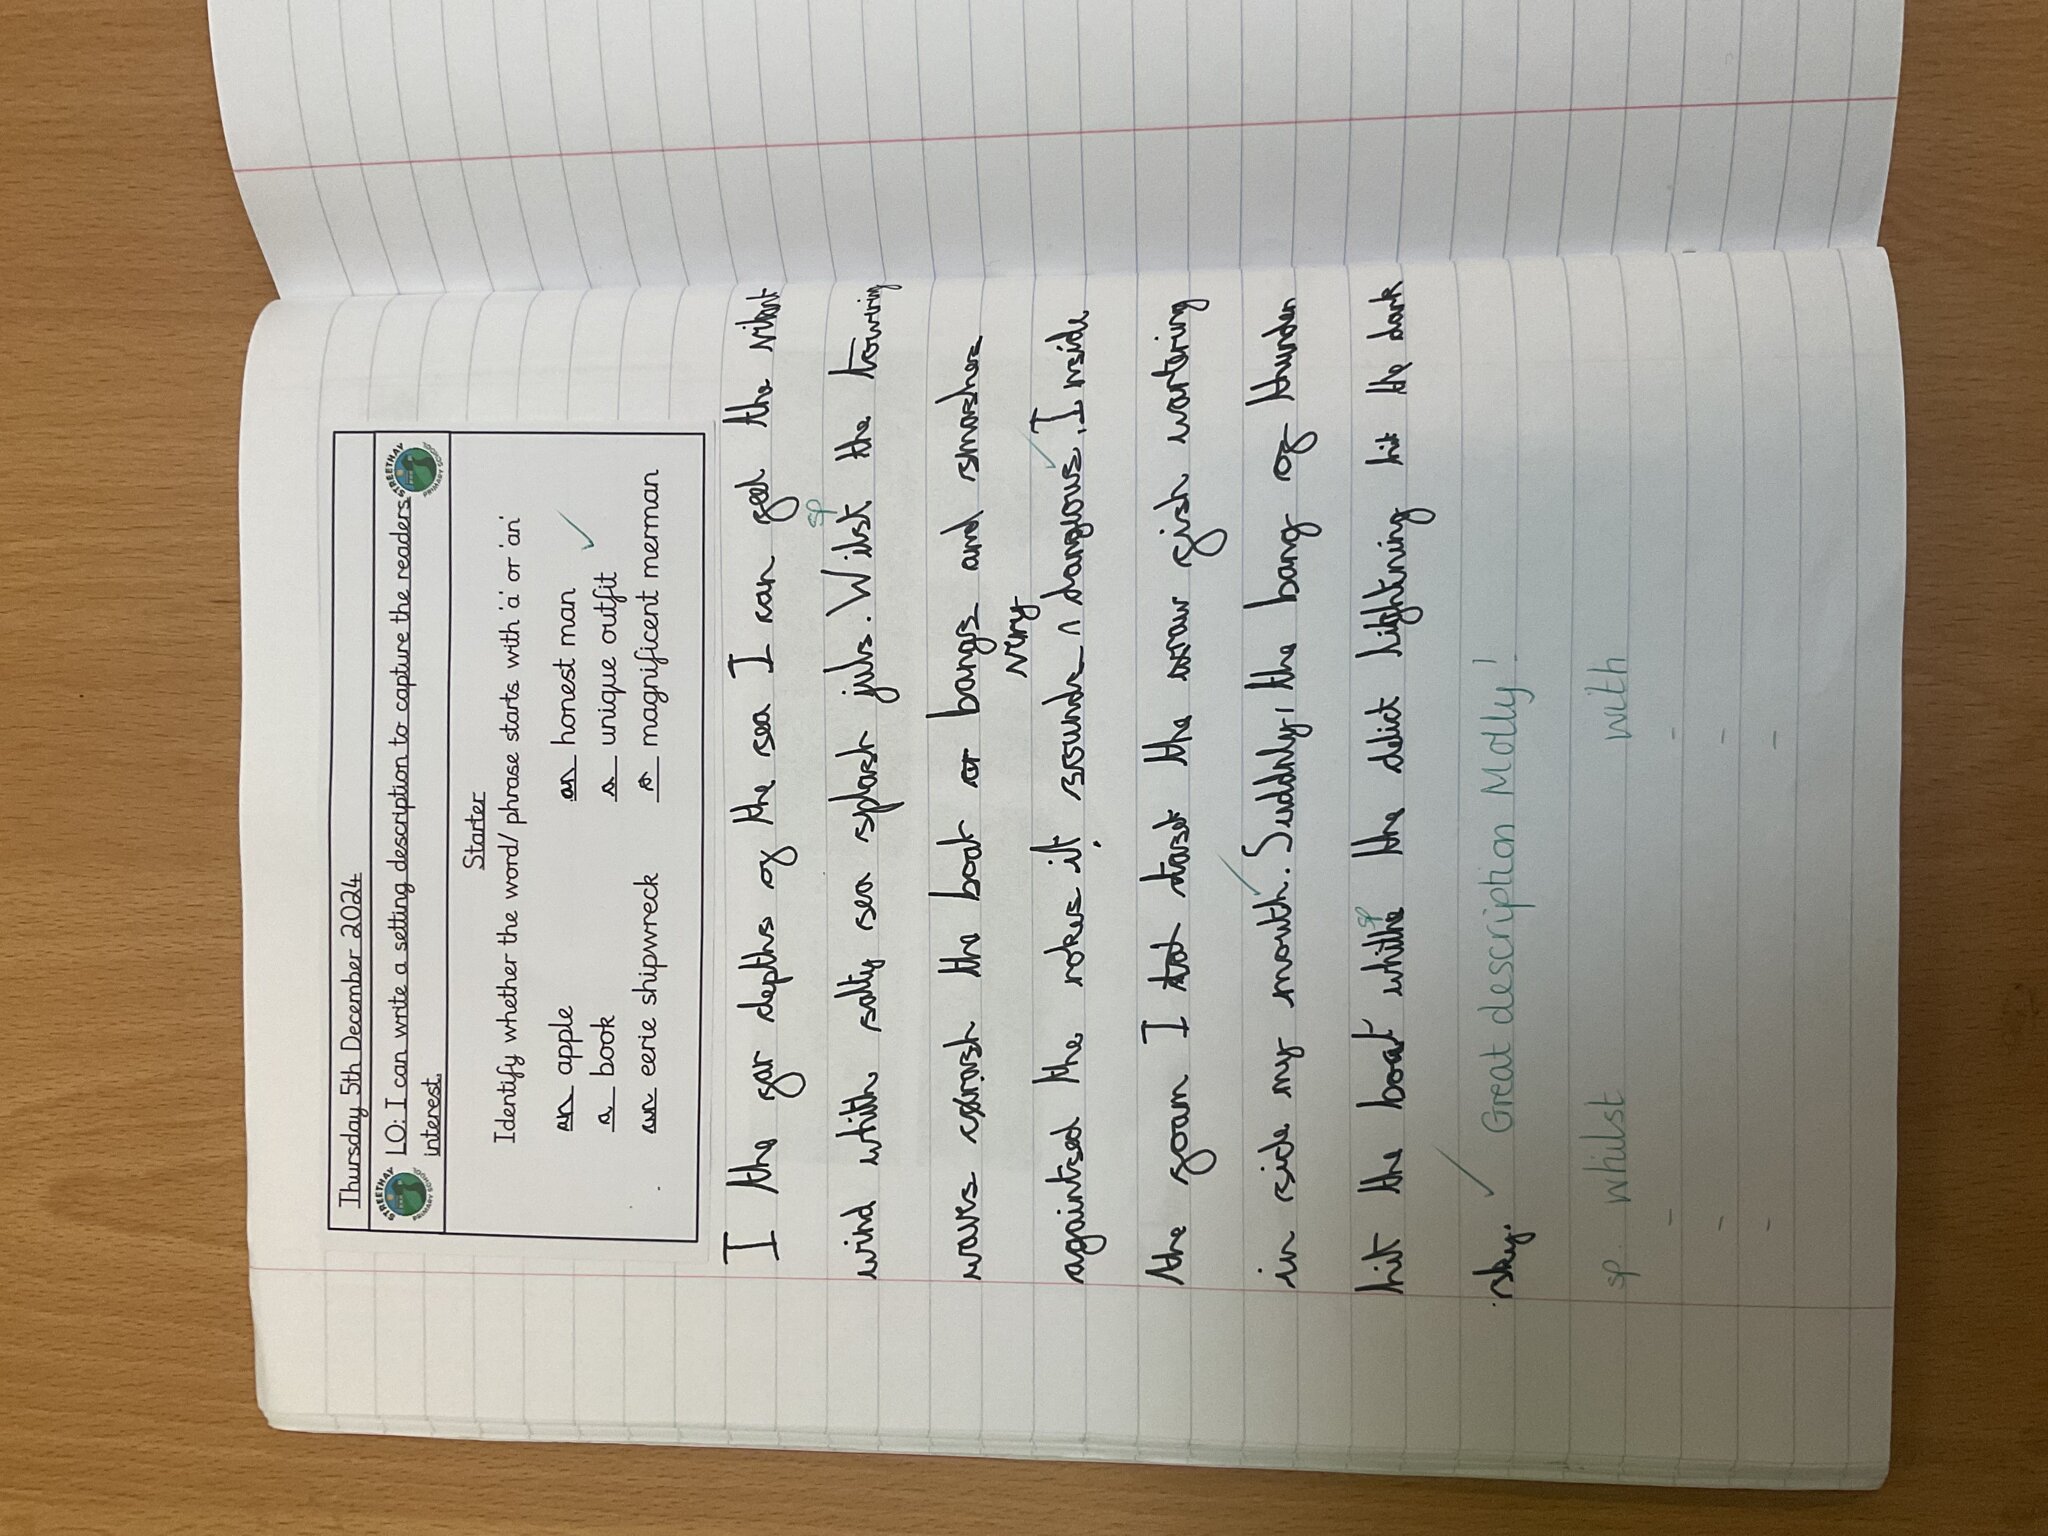 Thursday 5th December 2024
STREETHAY PRIMARY SCHOOL
LO: I can write a setting description to capture the readers
interest.
STREETHAY PRIMARY SCHOOL
Starter
Identify whether the word/ phrase starts with 'a' or 'an'
an apple an honest man
a book a unique outfit
an eerie shipwreck a magnificent merman
I the far depths of the sea I can feel the vilont
sp
wind whith salty sea splash juls. Wilst the towring
waves crash the boat or bangs and smashes
very
againtsed the rokes it sounds ^ dangrous. I nside
the foam I tat taset the raw fish wartering
in side my mouth. Suddnly, the bang of thunder
sp
hit the boat whithe the delict lightning hit the dark
sky. Great description Molly!
sp. whilst with
- -
- -
- -